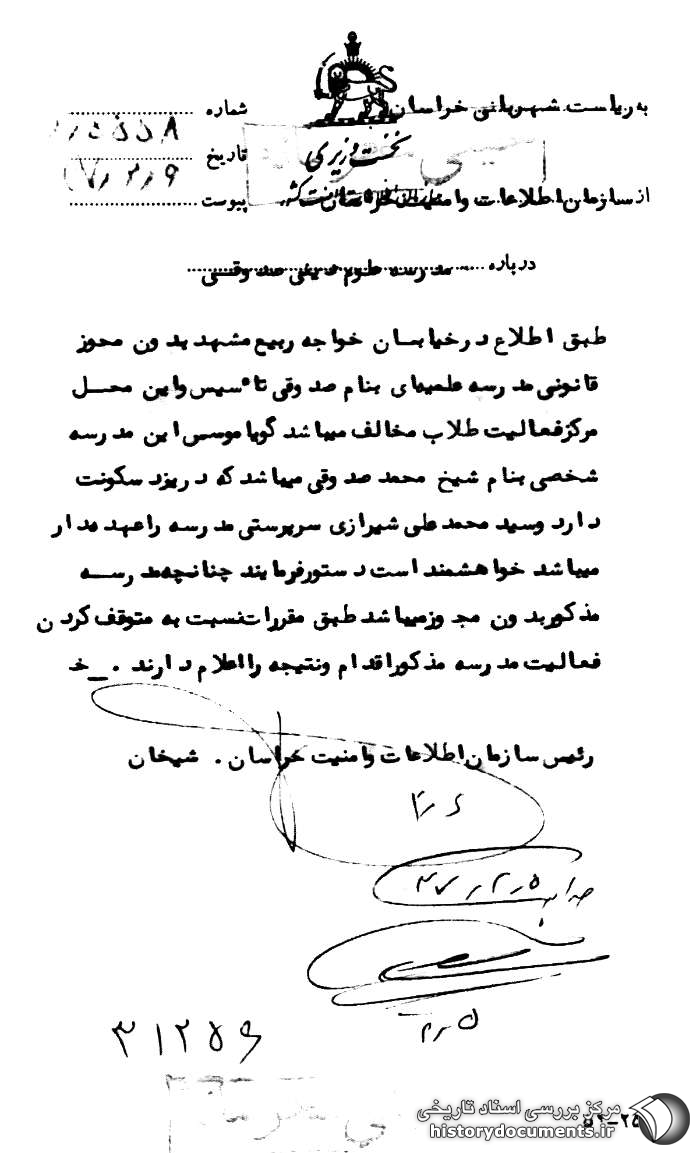 به ریاست شهربانی خراسان
شماره
۸
نخست وزیری
تاریخ
از سازمان اطلاعات وامنیت خراسان
پیوست
درباره مدرسه علوم دینی صدوقی
طبق اطلاع درخیابان خواجه ربیع مشهد بدون مجوز
قانونی مدرسه علمیه‌ای بنام صدوقی تاسیس واین محل
مرکزفعالیت طلاب مخالف میباشد گویا موسس این مدرسه
شخصی بنام شیخ محمد صدوقی میباشد که دریزد سکونت
دارد وسید محمد علی شیرازی سرپرستی مدرسه راعهده‌دار
میباشد خواهشمند است دستورفرمایند چنانچه مدرسه
مذکوربدون مجوزمیباشد طبق مقررات نسبت به متوقف کردن
فعالیت مدرسه مذکوراقدام ونتیجه رااعلام دارند . _خ
رئیس سازمان اطلاعات وامنیت خراسان . شیخان
۴۷٫۲٫۵
۳۱۲۵۶
مرکز بررسی اسناد تاریخی
historydocuments.ir